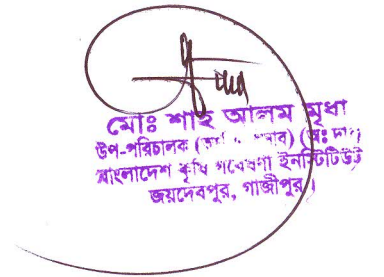 মোঃ শাহ আলম মৃধা
উপ-পরিচালক (অঃ দাঃ)
বাংলাদেশ কৃষি গবেষণা ইনস্টিটিউট
জয়দেবপুর, গাজীপুর।